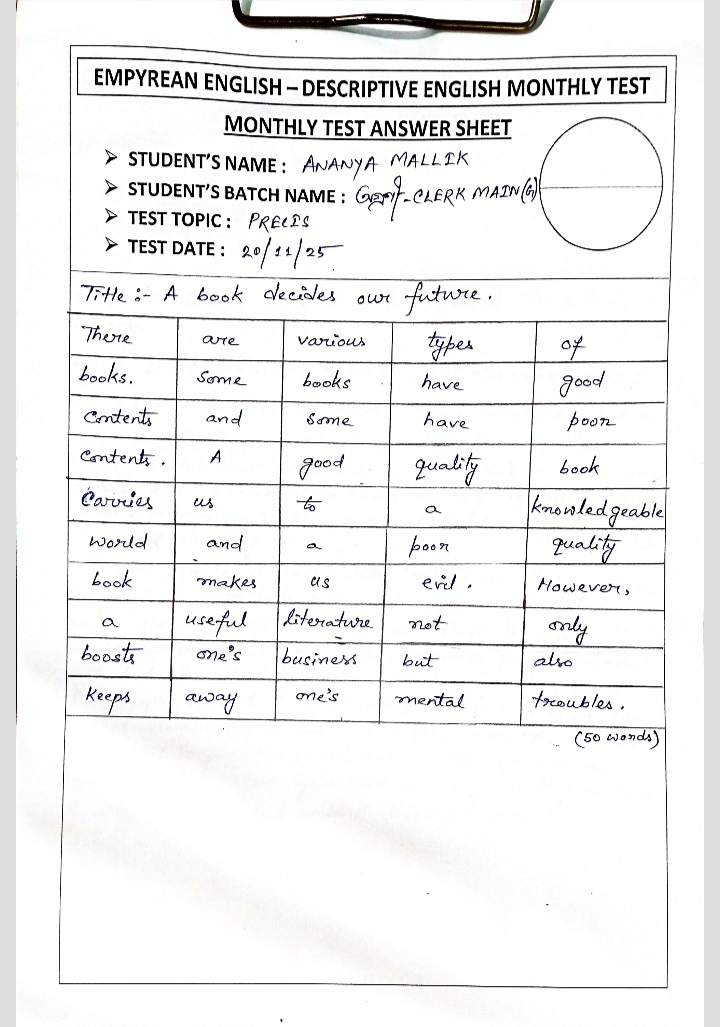 EMPYREAN ENGLISH – DESCRIPTIVE ENGLISH MONTHLY TEST
MONTHLY TEST ANSWER SHEET
➢ STUDENT'S NAME : ANANYA MALLIK
➢ STUDENT'S BATCH NAME : CLERK MAIN (G)
➢ TEST TOPIC : PRECIS
➢ TEST DATE : 20/11/25
Title :- A book decides our future.
There are various types of
books. Some books have good
Contents and some have poor
Contents. A good quality book
Carries us to a knowledgeable
world and a poor quality
book makes us evil. However,
a useful literature not only
boosts one's business but also
Keeps away one's mental troubles.
(50 words)